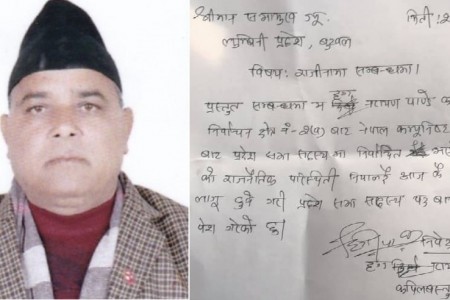 श्रीमान सभामुख ज्यू, मिती:
लुम्बिनी प्रदेश, बुटवल
विषय: राजीनामा सम्बन्धमा।
प्रस्तुत सम्बन्धमा म नारायण पाण्डे
निर्वाचन क्षेत्र नं- बाट नेपाल कम्युनिष्ट
बाट प्रदेश सभा सदस्यमा निर्वाचित
को राजनैतिक परिस्थिती आज कै
लागू हुने गरी प्रदेश सभा सदस्य पद बा
पेश गरेको छु।
निवेद
कपिलवस्तु